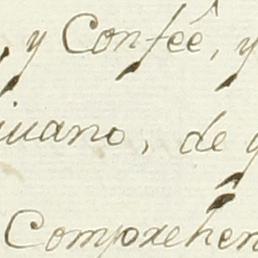 , y Confeê, y
iuano, de
Comprehen